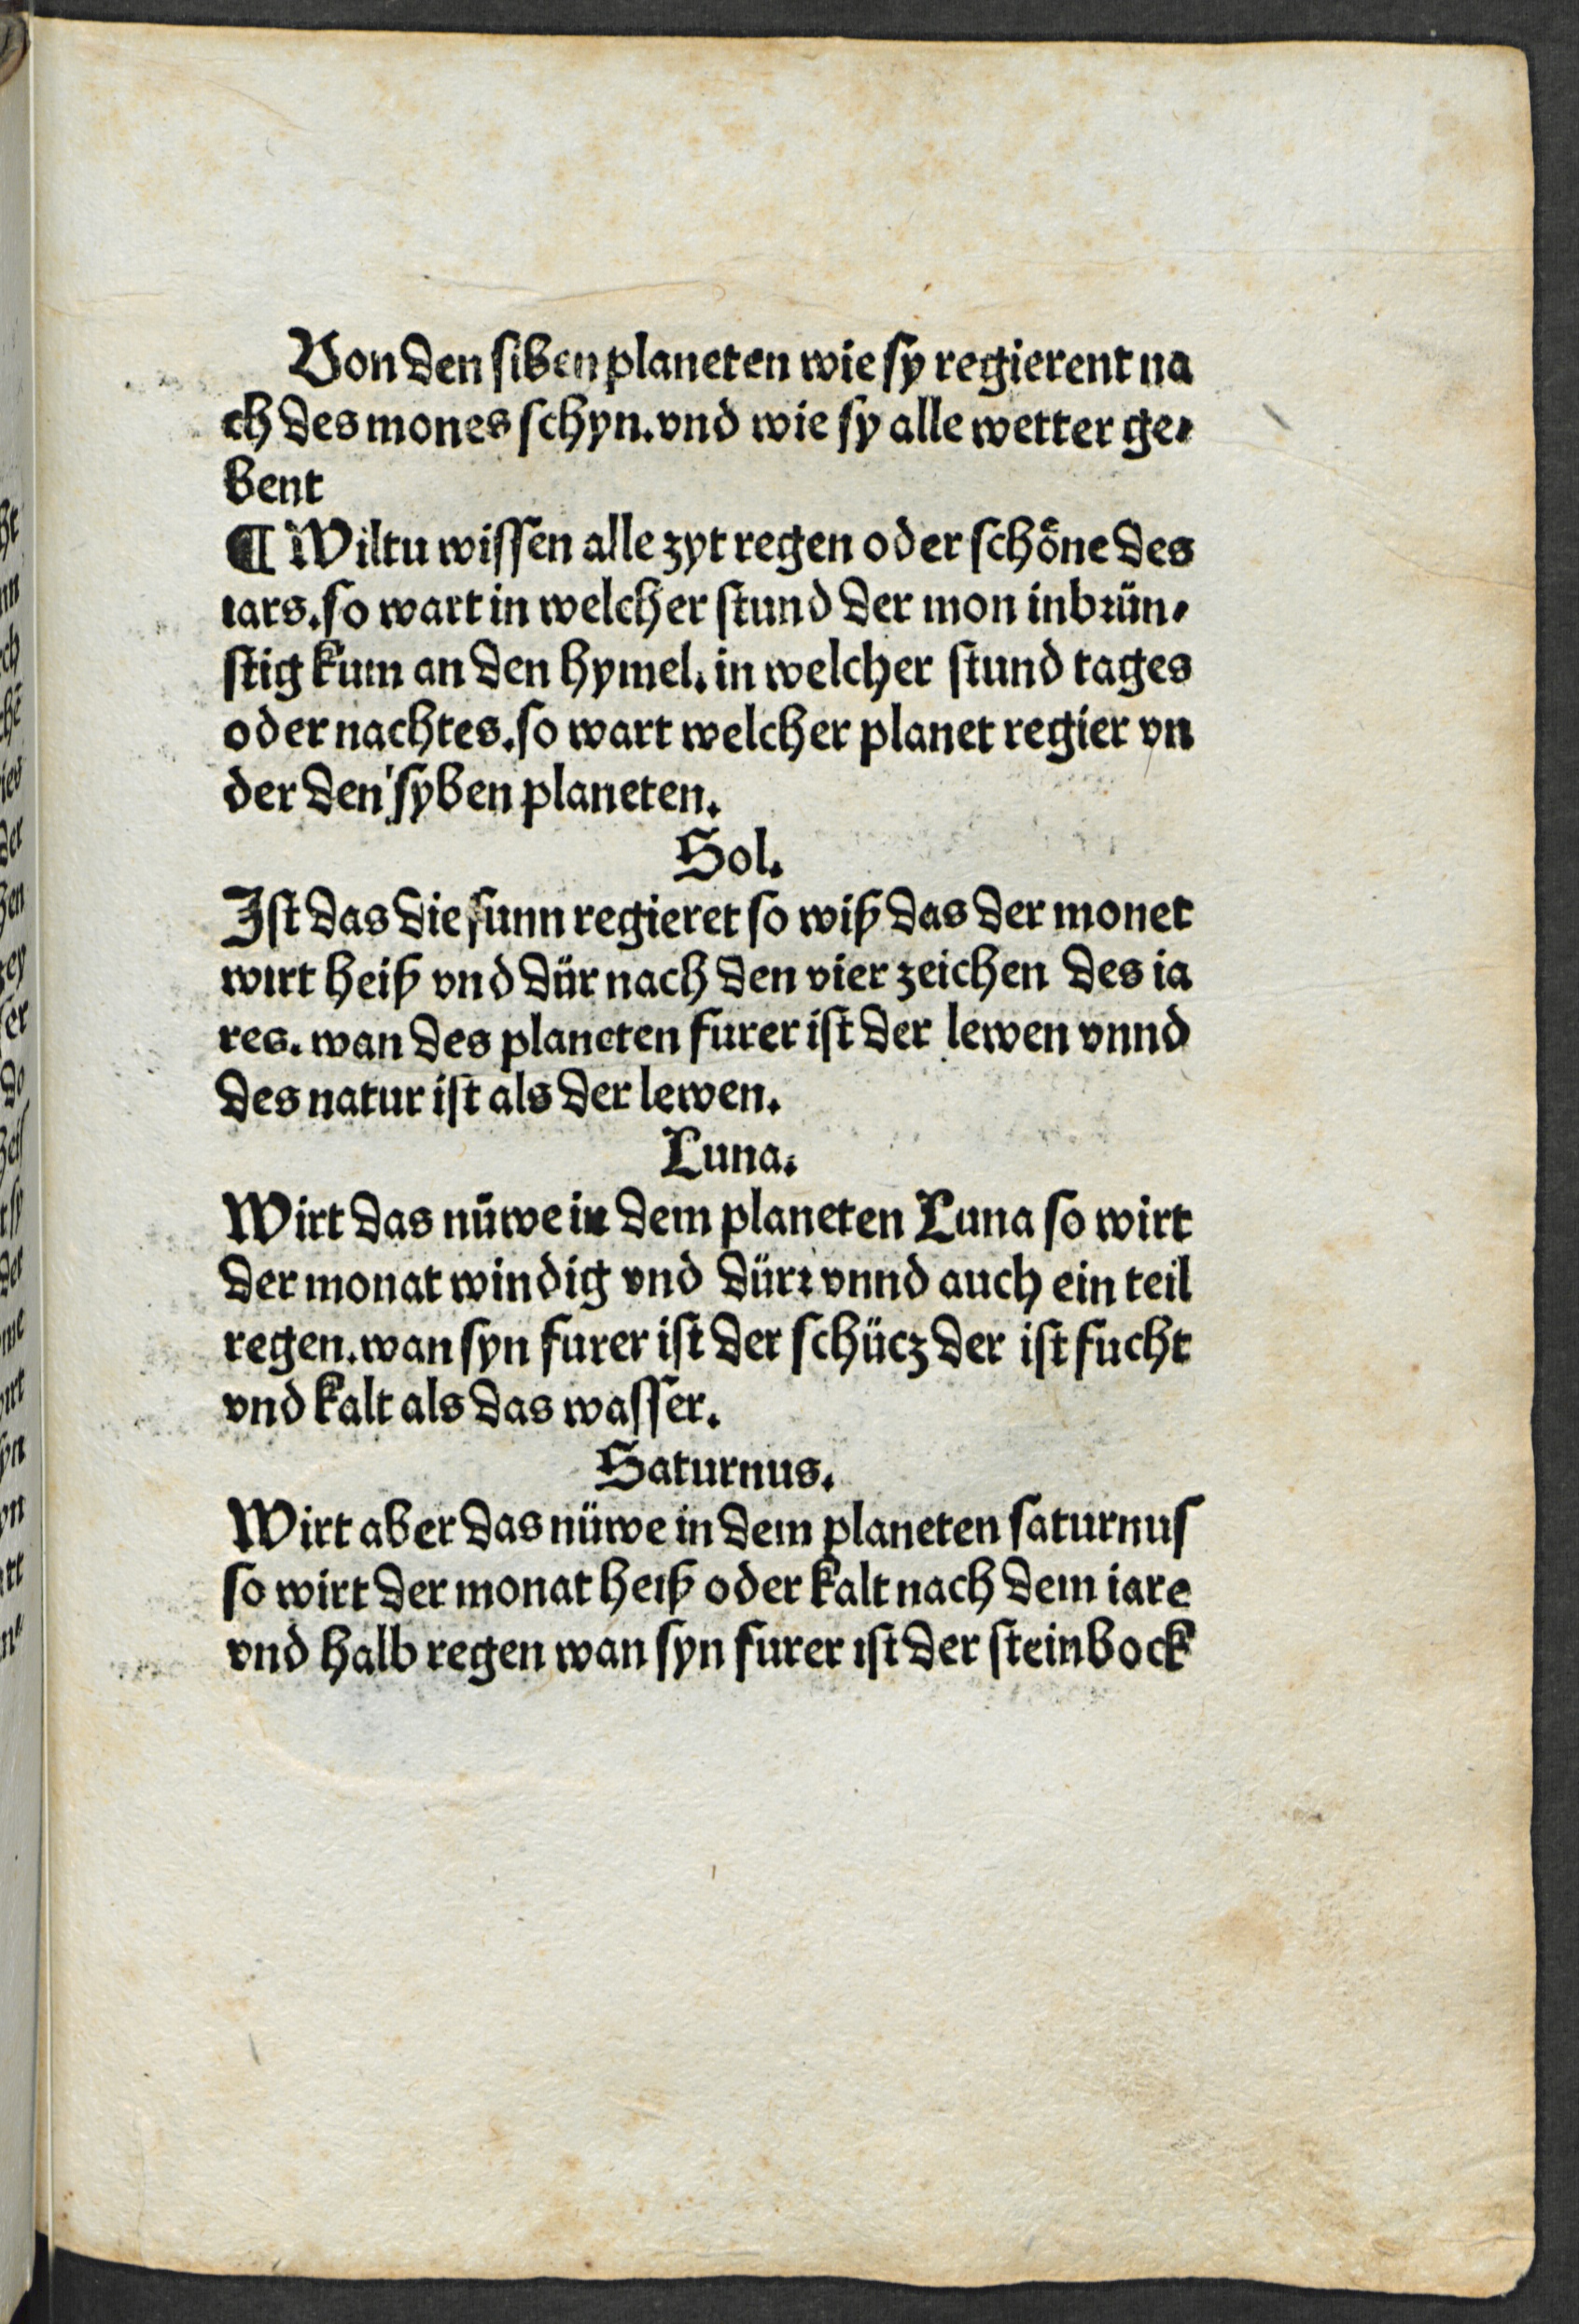 Von den siben planeten wie sy regierent na
ch des mones schyn. vnd wie sy alle wetter ge-
bent
¶ Wiltu wissen alle zyt regen oder schöne des
iars. so wart in welcher stund der mon inbrün-
stig kum an den hymel. in welcher stund tages
oder nachtes. so wart welcher planet regier vn
der den syben planeten.
Sol.
Ist das die sunn regieret so wiß das der monet
wirt heiß vnd dür nach den vier zeichen des ia
res. wan des planeten furer ist der lewen vnnd
des natur ist als der lewen.
Luna.
Wirt das nüwe in dem planeten Luna so wirt
der monat windig vnd dürr vnnd auch ein teil
regen. wan syn furer ist der schücz der ist fucht
vnd kalt als das wasser.
Saturnus.
Wirt aber das nüwe in dem planeten saturnus
so wirt der monat heiß oder kalt nach dem iare
vnd halb regen wan syn furer ist der steinbock